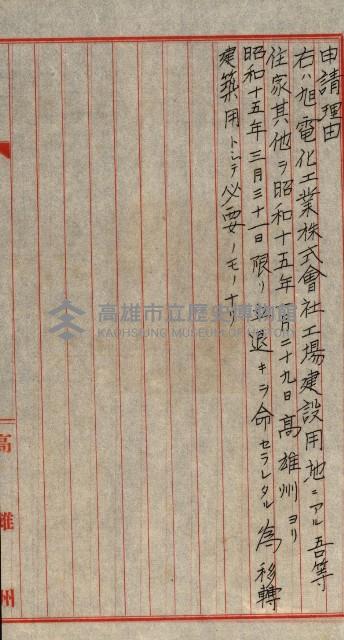 申請理由
右ハ旭電化工業株式會社工場建設用地ニアル吾等
住家其他ヲ昭和十五年一月二十九日高雄州ヨリ
昭和十五年三月三十一日限リ退キヲ命セラレタル為移轉
建築用トシテ必要ノモノナリ
高雄州
高雄市立歷史博物館
KAOHSIUNG MUSEUM OF HISTORY